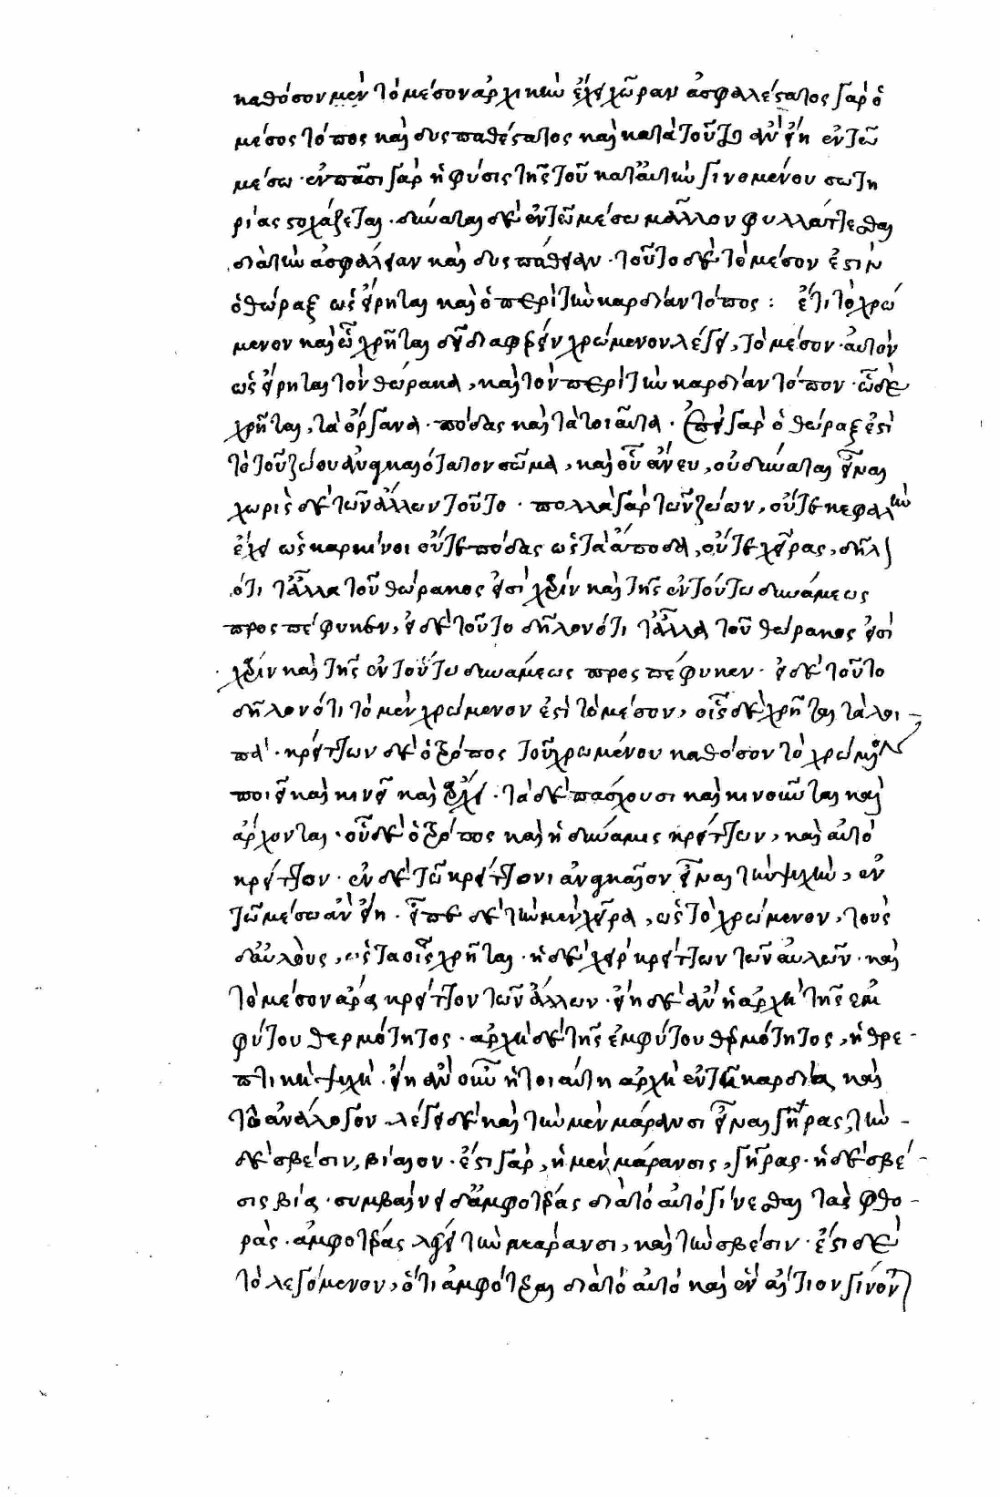 καθόσον μὲν τὸ μέσον ἀρχικὴν ἔχει χῶραν ἀσφαλέστατος γὰρ ὁ
μέσος τόπος καὶ δυσπαθέστατος καὶ κατὰ τοῦτο ἂν εἴη ἐν τῶ
μέσω · ἐν πᾶσι γὰρ ἡ φύσις τῆς τοῦ κατ' αὐτὴν γινομένου σωτη
ρίας στοχάζεται · δύναται δὲ ἐν τῶ μέσω μᾶλλον φυλάττεσθαι
διὰ τὴν ἀσφάλειαν καὶ δυσπάθειαν · τοῦτο δὲ τὸ μέσον ἐστὶν
ὁ θώραξ ὡς εἴρηται καὶ ὁ περὶ τὴν καρδίαν τόπος : ἔτι τὸ χρώ
μενον καὶ ὧ χρῆται δεῖ διαφέρειν χρώμενον λέγει, τὸ μέσον · αὐτὸν
ὡς εἴρηται τὸν θώρακα, καὶ τὸν περὶ τὴν καρδίαν τόπον · ὧ δὲ
χρῆται, τὰ ὄργανα · πόδας καὶ τὰ τοιαῦτα · ἐπεὶ γὰρ ὁ θώραξ ἐστὶ
τὸ τοῦ ζώου ἀναγκαιότατον σῶμα, καὶ οὗ ἄνευ, οὐ δύναται εἶναι
χωρὶς δὲ τῶν ἄλλων τοῦτο · πολλὰ γὰρ τῶν ζώων, οὔτε κεφαλὴν
ἔχει ὡς καρκίνοι οὔτε πόδας ὡς τὰ ἄποδα, οὔτε χεῖρας, δῆλ
ὅτι τἆλλα τοῦ θώρακος εἰσὶ χάριν καὶ τῆς ἐν τούτω δυνάμεως
προσπέφυκεν, εἰ δὲ τοῦτο δῆλον ὅτι τἆλλα τοῦ θώρακος εἰσὶ
χάριν καὶ τῆς ἐν τούτω δυνάμεως προσπέφυκεν · εἰ δὲ τοῦτο
δῆλον ὅτι τὸ μὲν χρώμενον ἐστὶ τὸ μέσον, οἷς δὲ χρῆται τὰ λοι-
πά · κρείττων δὲ ὁ τρόπος τοῦ χρωμένου καθόσον τὸ χρώμενον
ποιεῖ καὶ κινεῖ καὶ ἄρχει · τὰ δὲ πάσχουσι καὶ κινοῦνται καὶ
ἄρχονται · οὗ δὲ ὁ τρόπος καὶ ἡ δύναμις κρείττων, καὶ αὐτὸ
κρεῖττον · ἐν δὲ τῶ κρείττονι ἀναγκαῖον εἶναι τὴν ψυχὴν, ἐν
τῶ μέσω ἂν εἴη · εἶπε δὲ τὴν μὲν χεῖρα, ὡς τὸ χρώμενον, τοὺς
δ' αὐλοὺς, ὡς τὰ οἷς χρῆται · ἡ δὲ χεὶρ κρείττων τῶν αὐλῶν · καὶ
τὸ μέσον ἄρα κρεῖττον τῶν ἄλλων · εἴη δὲ ἂν ἡ ἀρχὴ τῆς ἐμ
φύτου θερμότητος · ἀρχὴ δὲ τῆς ἐμφύτου θερμότητος, ἡ θρε-
πτικὴ ψυχὴ · εἴη ἂν οὖν ἡ τοιαύτη ἀρχὴ ἐν τῆ καρδία καὶ
τῶ ἀνάλογον λέγει δὲ καὶ τὴν μὲν μάρανσι εἶναι γήρας, τὴν -
δὲ σβέσιν, βίαιον · ἔστι γὰρ, ἡ μὲν μάρανσις, γήρας · ἡ δὲ σβέ-
σις βία · συμβαίνει δ' ἀμφοτέρας διὰ τὸ αὐτὸ γίνεσθαι τὰς φθο-
ράς · ἀμφοτέρας λέγει τὴν μάρανσι, καὶ τὴν σβέσιν · ἔστι δὲ
τὸ λεγόμενον, ὅτι ἀμφότεραι διὰ τὸ αὐτὸ καὶ ἓν αἴτιον γίνον